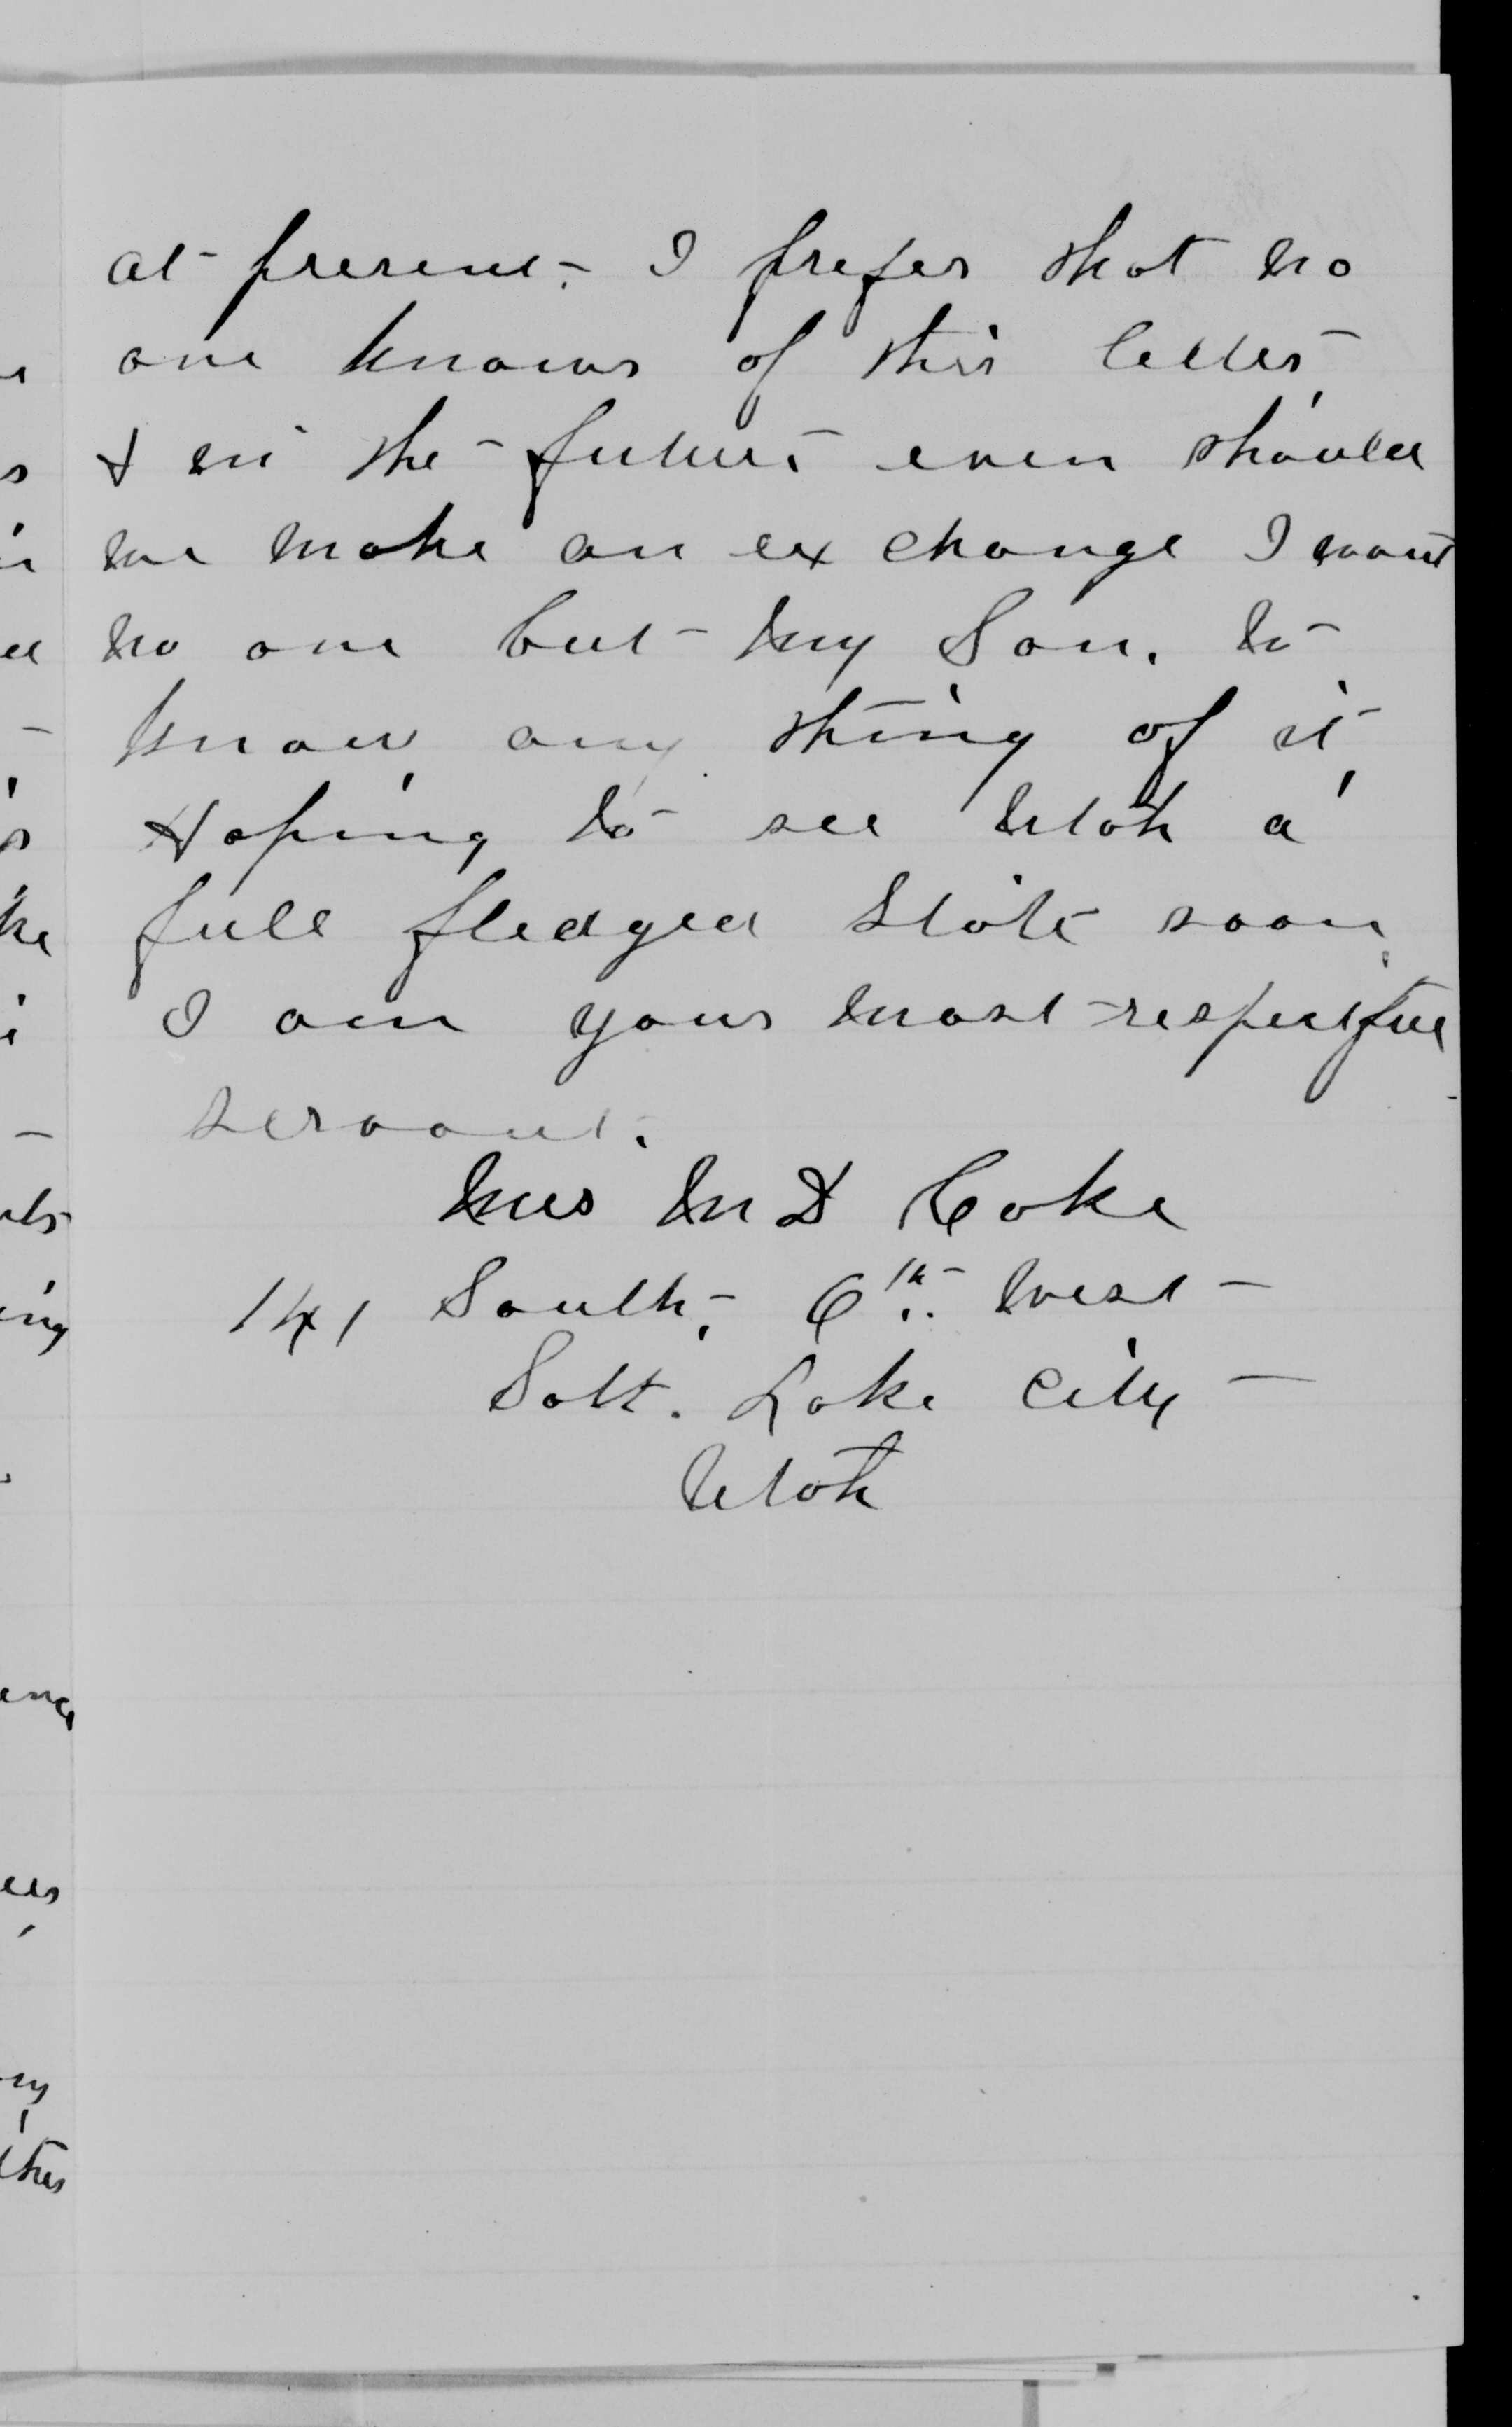 at present. I prefer that no
one knows of this letter,
& in the future even should
we make an ex change I want
no one but my Son. to
know any thing of it,
Hoping to see Utah a
full fledged State soon,
I am your most respectful
servant.
Mrs M D Coke
141 South, 6th West
Salt. Lake City
Utah